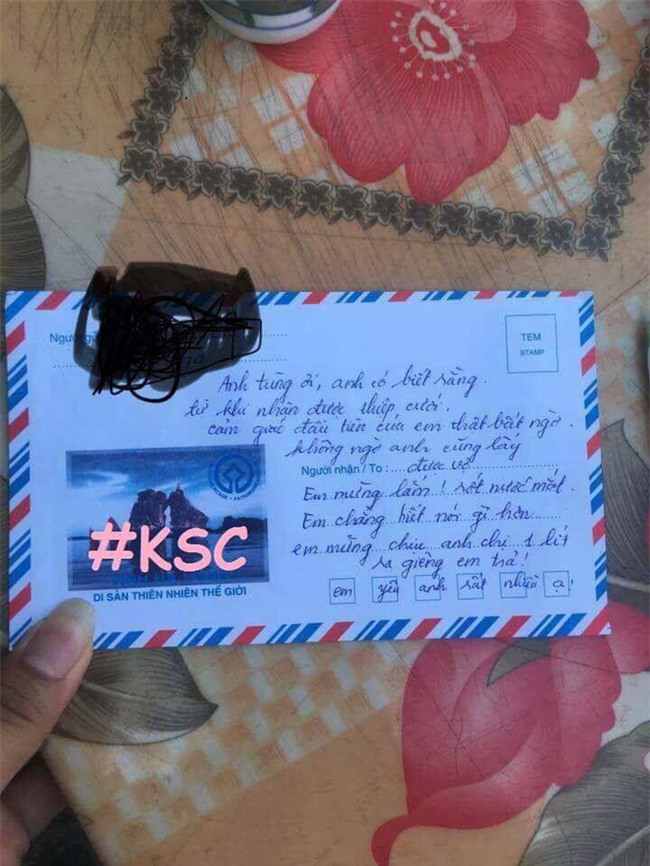 Người gửi
TEM
STAMP
Anh tùng ơi, anh có biết rằng.
từ khi nhận được thiệp cưới.
cảm giác đầu tiên của em thật bất ngờ.
không ngờ anh cũng lấy
Người nhận / To : được vợ
Em mừng lắm! rớt nước mắt.
Em chẳng biết nói gì hơn
em mừng chiu anh chi 1 lít
ra giêng em trả!
em yêu anh rất nhiều ạ!
#KSC
DI SẢN THIÊN NHIÊN THẾ GIỚI